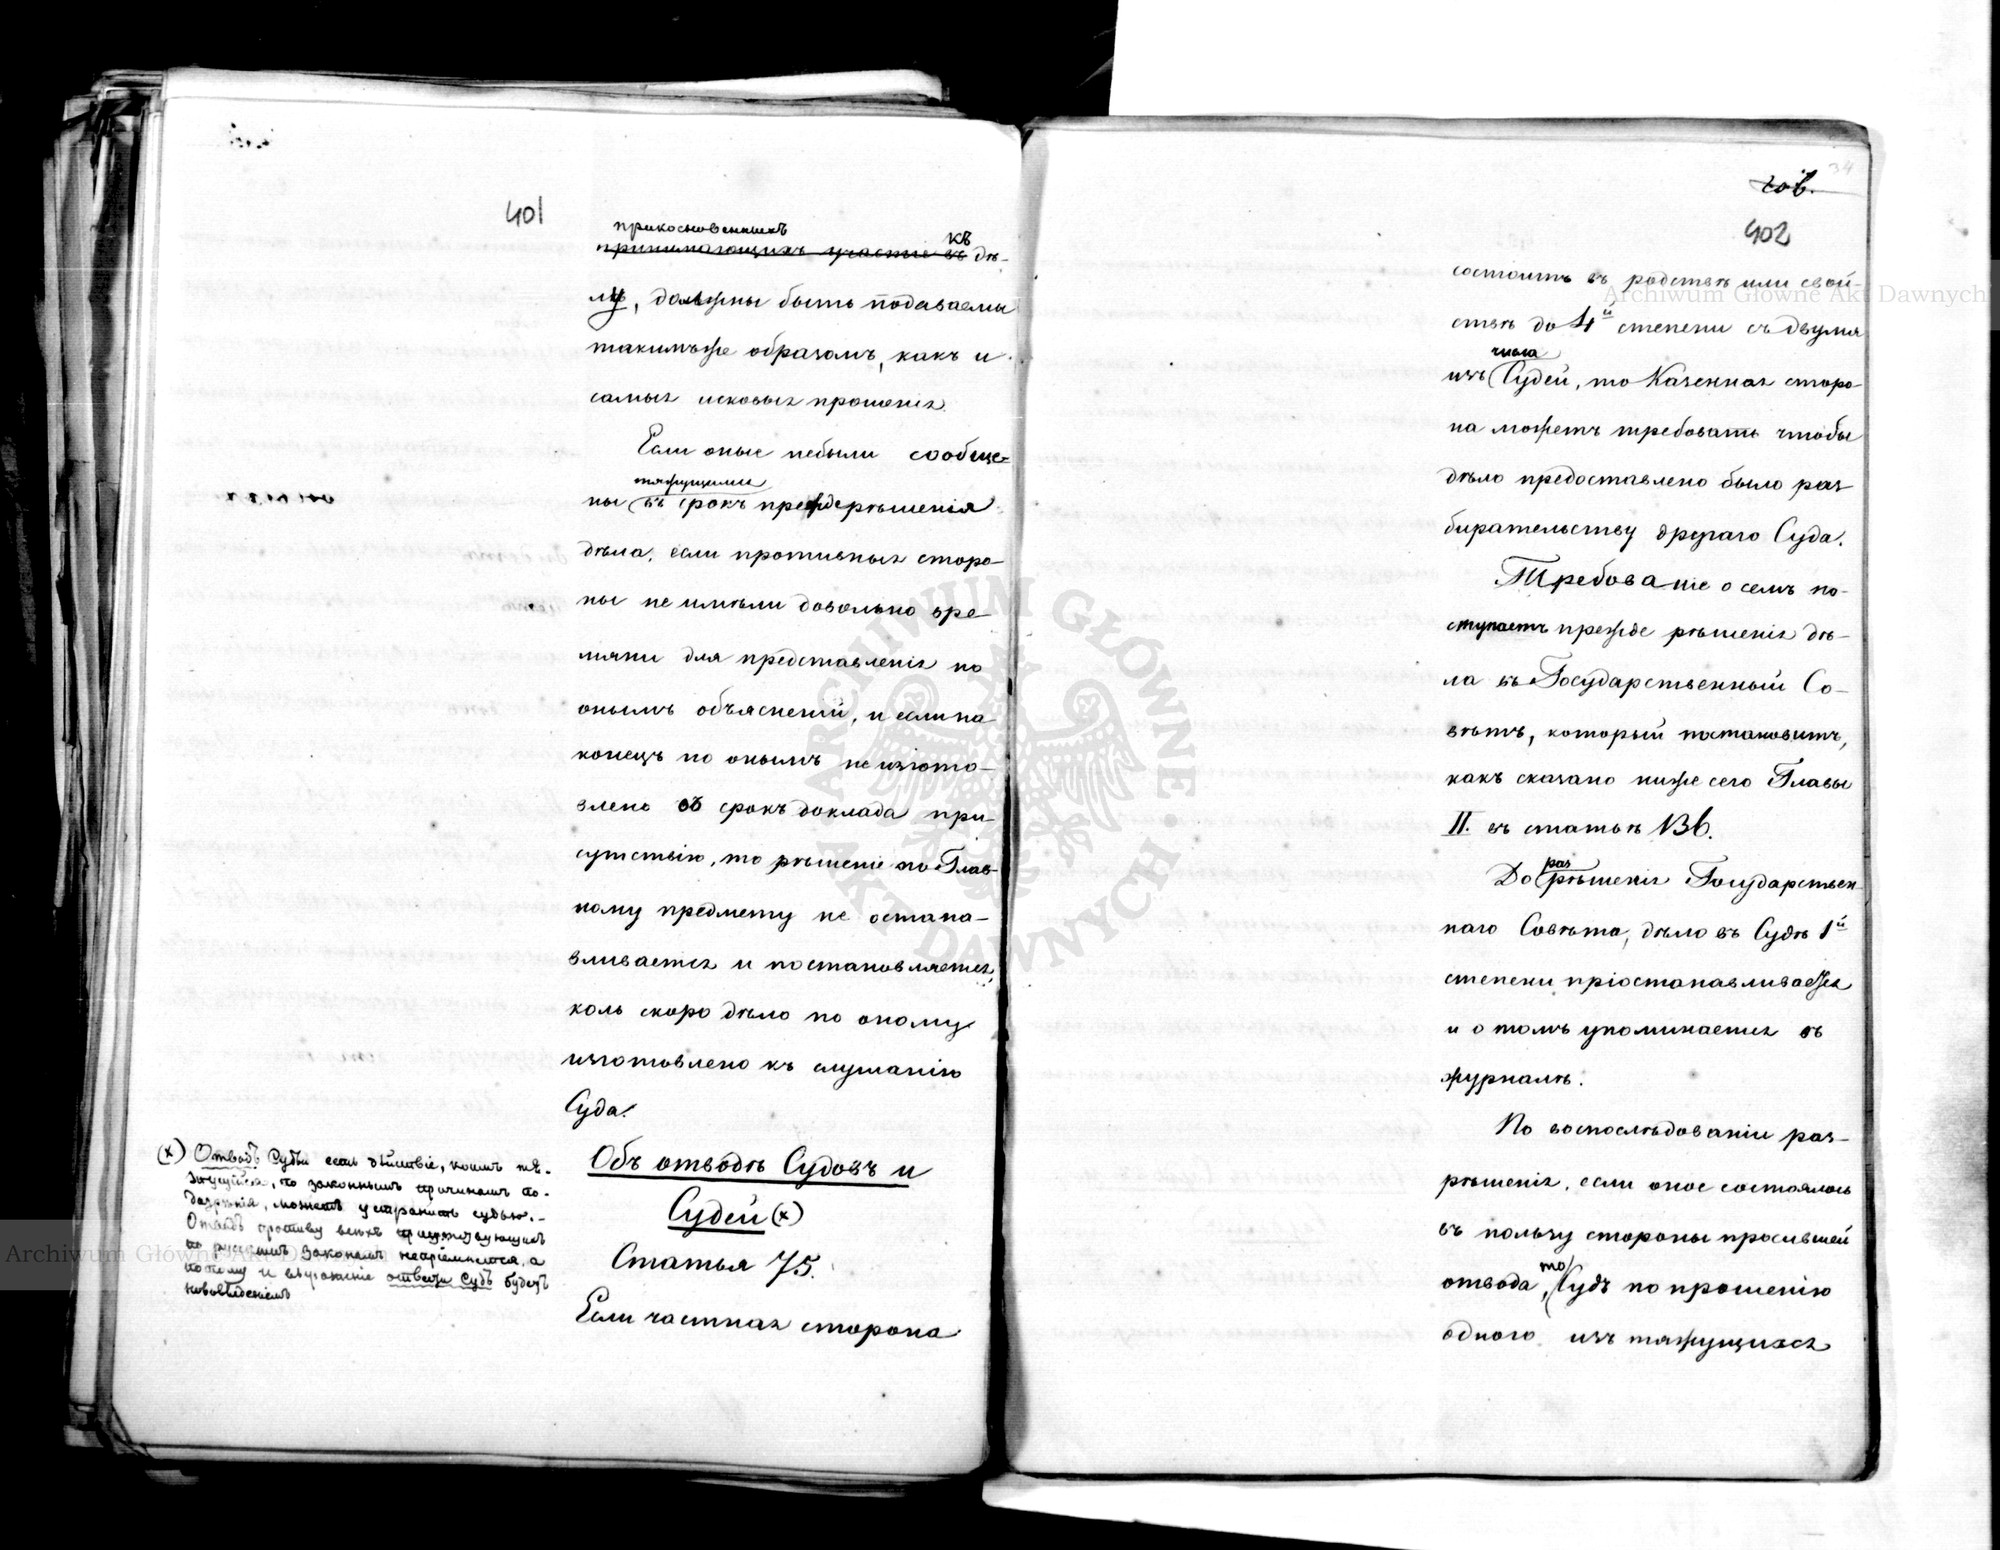 401
прикосновенныхъ къ
принимающихъ участіе въ дѣ-
лу, должны быть подаваемы
такимъже образомъ, какъ и
самыя исковыя прошенія.
Если оные небыли сообще-
тяжущимися
ны въ срокъ преждерѣшенія
дѣла, если противныя сторо-
ны не имѣли довольно вре-
мяни для представленія по
онымъ объясненій, и если на
конецъ по онымъ не изгото-
влено въ срокъ доклада при-
сутствію, то рѣшеніе по Глав-
ному предмету не остана-
вливается и постановляется,
коль скоро дѣло по оному
изготовлено къ слушанію
Суда.
Объ отводѣ Судовъ и
Судей (х)
Статья 75.
Если частная сторона
(х) Отводъ Судьи есть дѣйствіе, коимъ тя-
жущійся, по законнымъ причинамъ по-
дозрѣнія, можетъ устранить судью.-
Отводъ противу всѣхъ присутствующихъ
по русскимъ законамъ непріемлется, а
потому и выраженіе отводъ Судъ будетъ
нововведеніемъ
34
402
состоитъ въ родствѣ или свой-
ствѣ до 4й степени съ двумя
числа
изъ Судей, то Казенная сторо-
на можетъ требовать чтобы
дѣло предоставлено было раз
бирательству другаго Суда.
Требованіе о семъ по-
ступаетъ прежде рѣшенія дѣ-
ла въ Государственный Со-
вѣтъ, который постановитъ,
какъ сказано ниже сего Главы
II. въ статьѣ
раз
До рѣшенія Государствен-
наго Совѣта, дѣло въ Судѣ 1й
степени пріостанавливается
и о томъ упоминается въ
журналѣ.
По воспослѣдованіи раз-
рѣшенія, если оное состоялось
въ пользу стороны просившей
то
отвода, Судъ по прошенію
одного изъ тяжущихся
Archiwum Główne Akt Dawnych
Archiwum Główne Akt Dawnych
ARCHIWUM GŁÓWNE AKT DAWNYCH